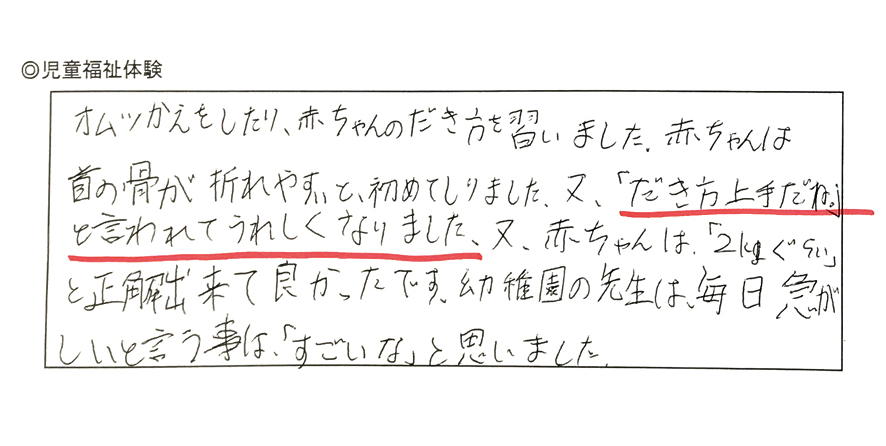 ◎児童福祉体験
オムツかえをしたり、赤ちゃんのだき方を習いました。赤ちゃんは
首の骨が折れやすいと、初めてしりました。又、「だき方上手だね。」
と言われてうれしくなりました。又、赤ちゃんは、「2kgぐらい」
と正解出来て良かったです。幼稚園の先生は、毎日急が
しいと言う事は、「すごいな」と思いました。